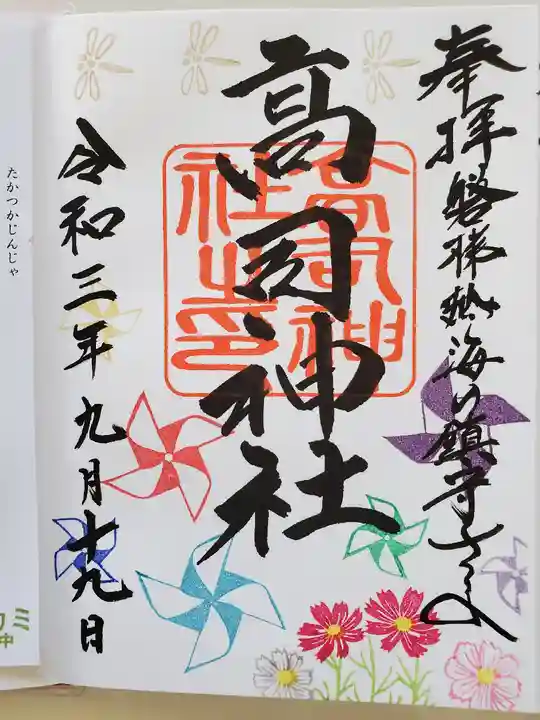 奉拝
海の鎮守さま
高司神社
高司神社之印
令和三年九月十九日
たかつかじんじゃ
中